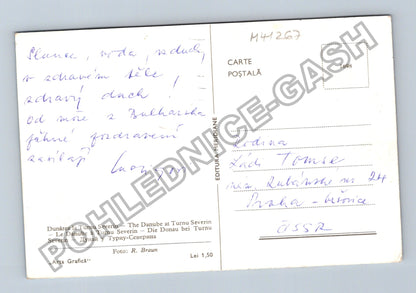 M41267
Slunce, voda, vzduch,
v zdravém těle,
zdravý duch!
od moře z Bulharska
pěkné pozdravení
zasílají
CARTE
POȘTALĂ
EDITURA MERIDIANE
Rodina
Lád. Tomse
24
Praha
ČSSR
Dunărea la Turnu Severin — The Danube at Turnu Severin
— Le Danube à Turnu Severin — Die Donau bei Turnu
Severin — Дунай у Турну-Северина
Foto: R. Braun
„Arta Grafică"
Lei 1,50
POHLEDNICE-GASH